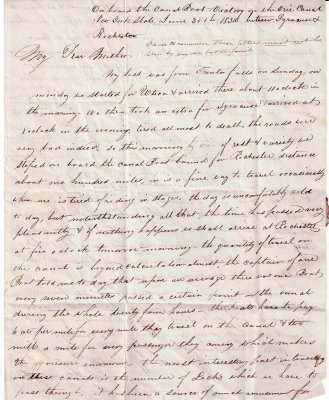 On board the Canal Boat Victory on the Erie Canal
New York State June 30th between Syracuse &
Rochester
these letters must not be
seen by any one out of the family
My Dear Mother,
My last was from Trenton falls on Sunday, on
monday we started for Utica & arrived there about 11 oclock in
the morning. We then took an extra for Syracuse & arrived at
1 oclock in the evening tired all most to death, the roads were
very bad indeed, so this morning by way of rest & variety we
steped on board the canal Boat bound for Rochester distance
about one hundred miles, in is a fine way to travel occasionally
when one is tired of riding in stages, the day is uncomfortably cold
to day, but notwithstanding all that, the time has passed very
pleasantly & if nothing happens we shall arrive at Rochester
at five oclock tomorrow morning - the quantity of travel on
the canal is beyond calculation almost, the captain of our
Boat told me to day, that upon an average there was one Boat
every seven minutes passed a certain point on the canal
during the whole twenty four hours - the Boats have to pay
6 cts per mile for every mile they travel on the Canal & two
mills a mile for every passenger they carry which makes
the revenue immense. the most interesting part in traveling
on these canals is the number of Locks which we have to
pass through, it has been a source of great amusement for